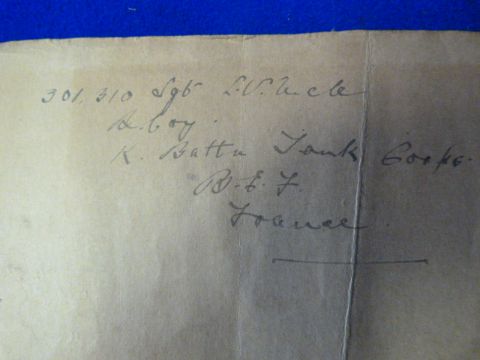 301,310 Sgt
Coy.
K. Battn Tank Corps.
B. E. F.
France